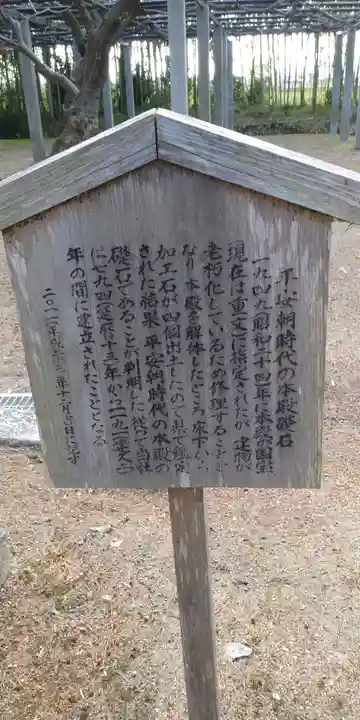 平安朝時代の本殿礎石
一九四九(昭和二十四年に本殿が国宝
現在は重文に指定されたが 建物が
老朽化しているため修理することに
なり 本殿を解体したところ 床下から
加工石が四個出土したので 県で鑑定
された結果 平安朝時代の本殿の
礎石であることが判明した 従って当社
は七九四(延暦十三年から一一九二
年の間に建立されたことになる
二〇一一年